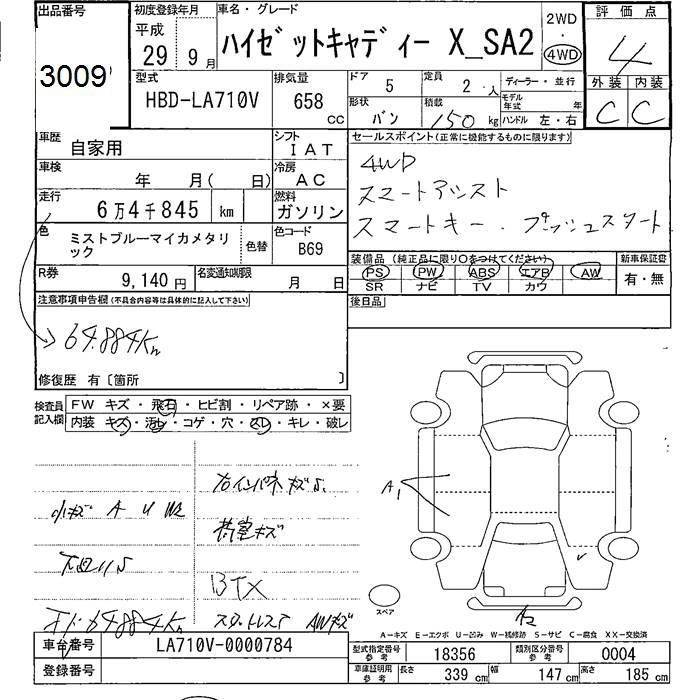 出品番号
3009
初度登録年月
平成
29年 9月
車名・グレード
ハイゼットキャディー X_SA2
2WD
・
4WD
評価点
4
外装 内装
C C
型式
HBD-LA710V
排気量
658 CC
ドア 5
定員 2 人
ディーラー・並行
形状 バン
積載 150 kg
モデル年式 年
ハンドル 左・右
車歴
自家用
シフト
IAT
車検
年 月( 日)
冷房
AC
走行
6万4千845 km
燃料
ガソリン
色
ミストブルーマイカメタリック
色替
色コード
B69
R券
9,140円
名変通知期限
月 日
セールスポイント(正常に機能するものに限ります)
4WD
スマートアシスト
スマートキー・プッシュスタート
装備品(純正品に限り○をつけてください)
新車保証書
PS PW ABS エアB AW
SR ナビ TV カワ
有・無
後日品
注意事項申告欄(不具合内容等は具体的に記入して下さい)
64.884Km
修復歴 有〔箇所 〕
検査員記入欄
FW キズ・飛石・ヒビ割・リペア跡・×要
内装 キズ・汚レ・コゲ・穴・スレ・キレ・破レ
右インパネキズ
小キズ A U W2
荷室キズ
下回リS
BTX
64884Km
スタットレス AWキズ
A1
A2
スペア
A-キズ E-エクボ U-凹み W-補修跡 S-サビ C-腐食 XX-交換済
車台番号
LA710V-0000784
登録番号
型式指定番号 参考 18356
類別区分番号 参考 0004
車庫証明用 参考 長さ 339 cm 幅 147 cm 高さ 185 cm